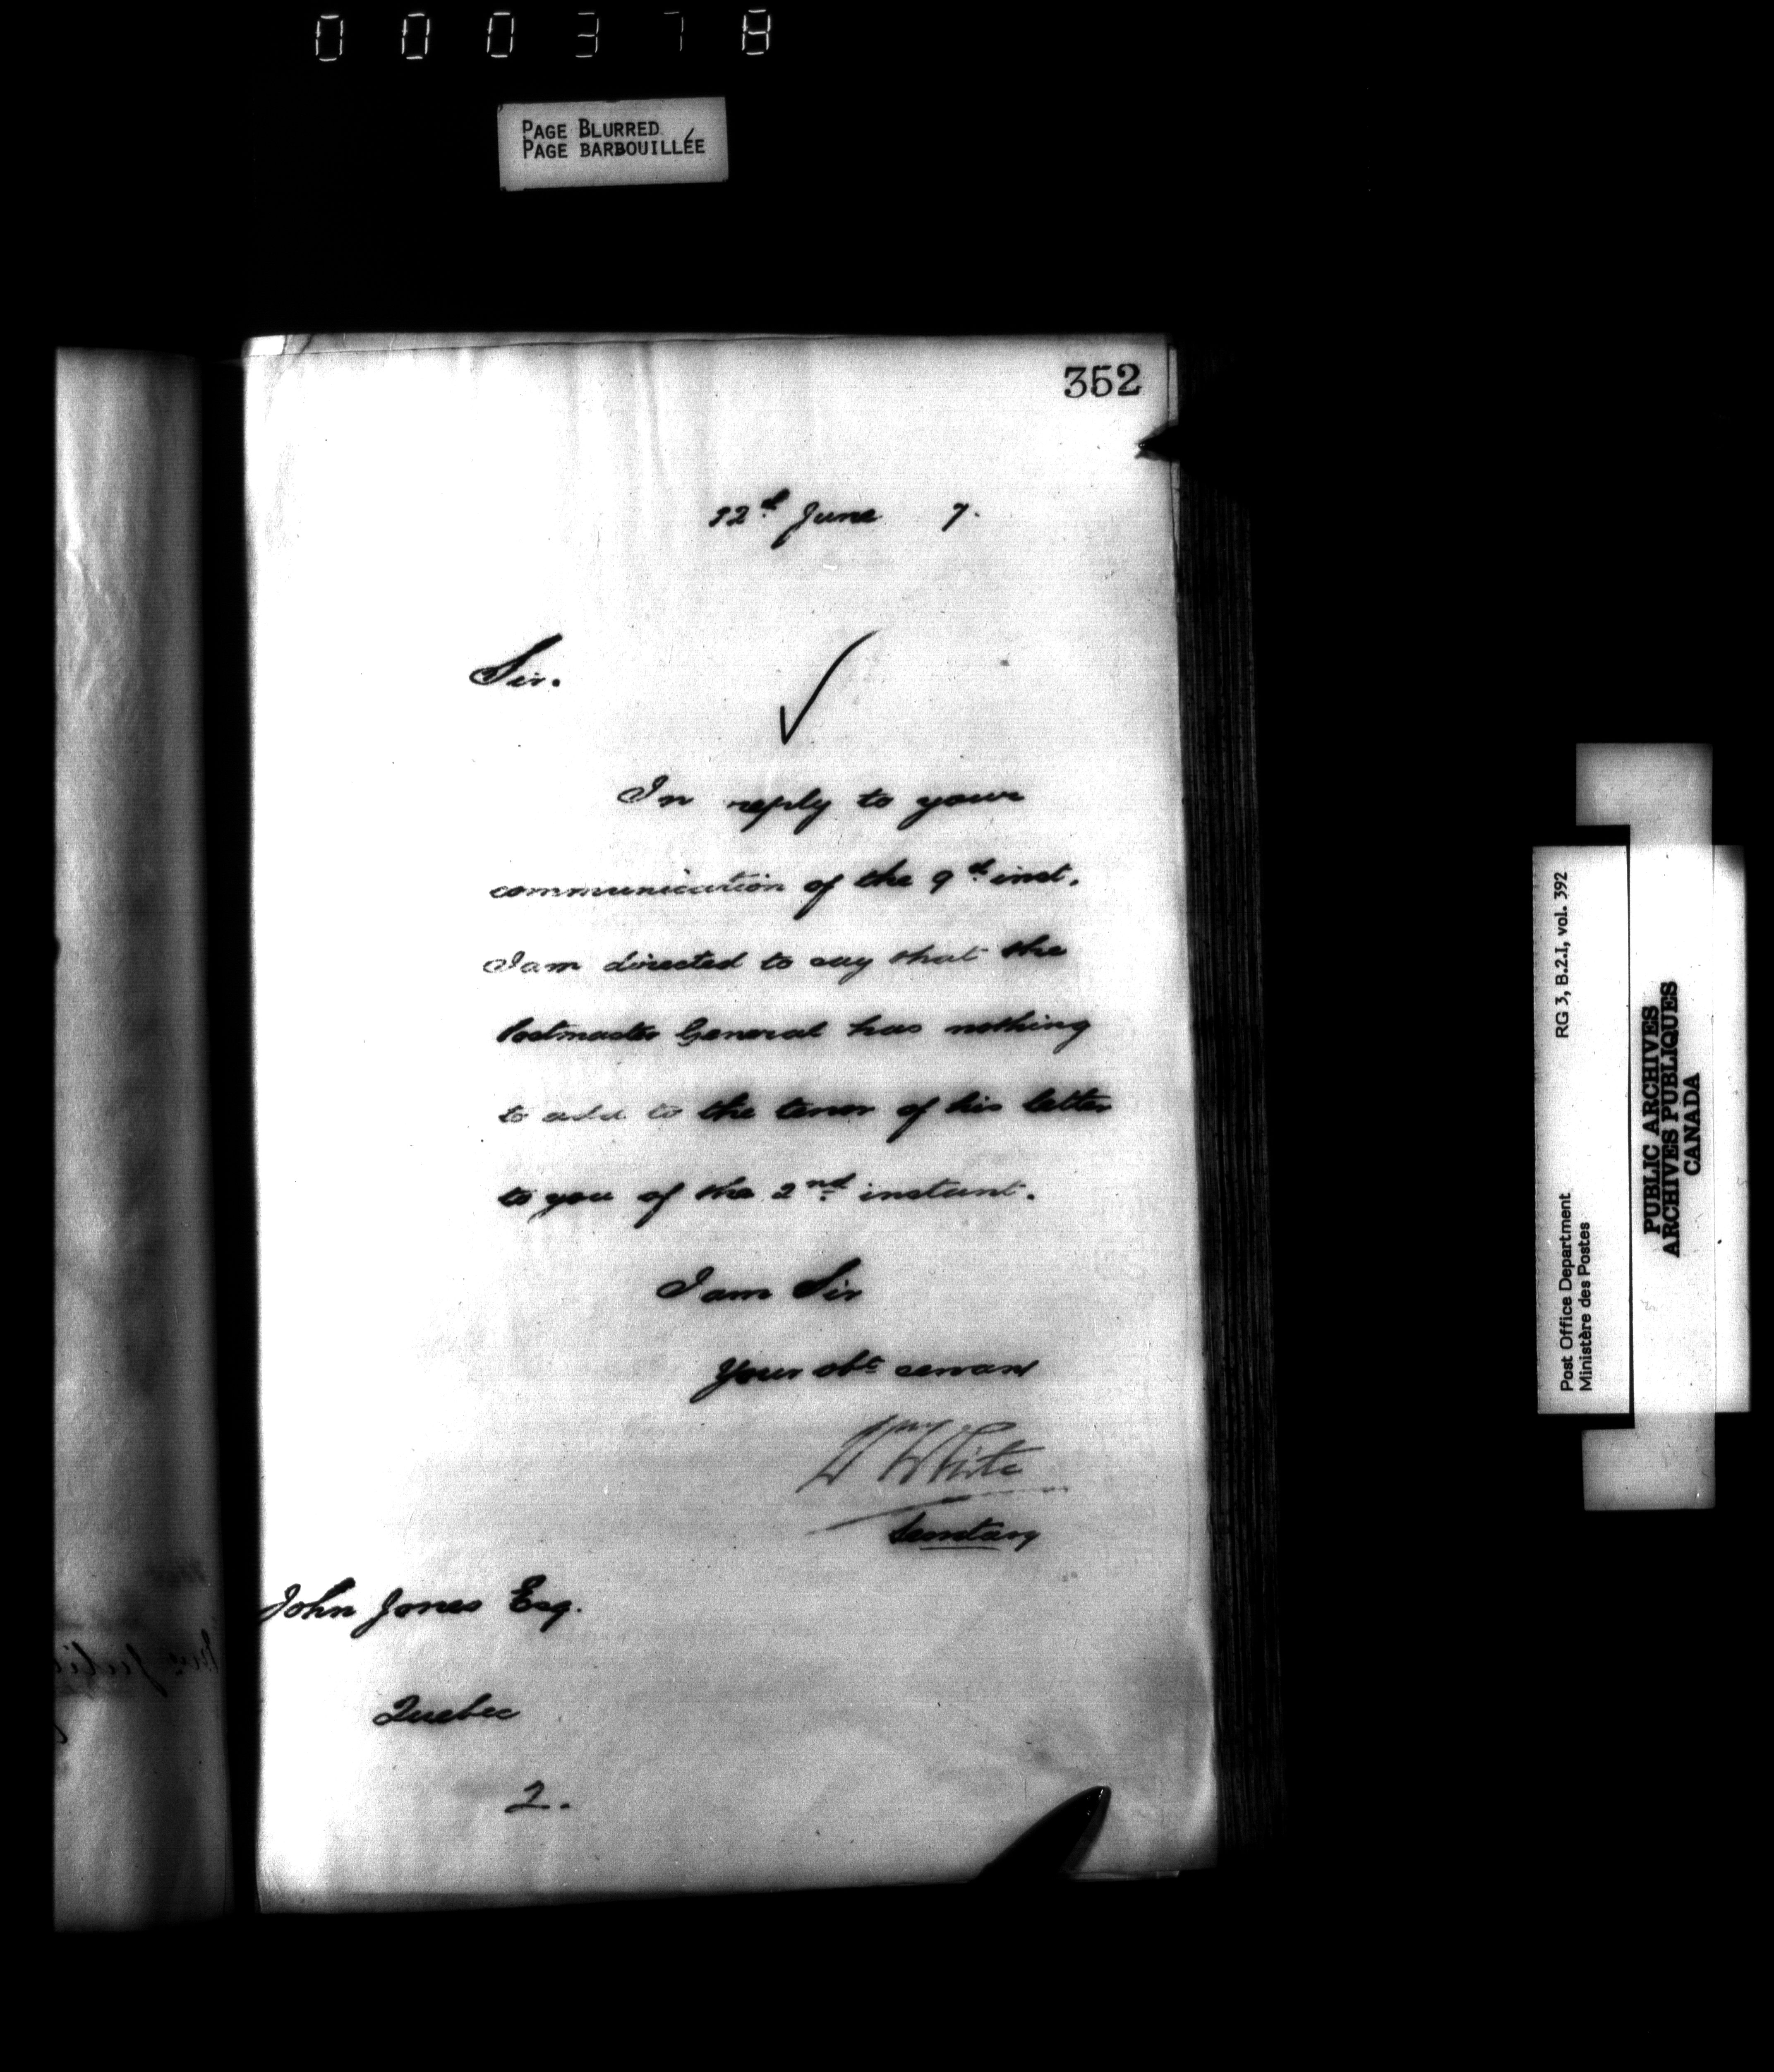 000378
PAGE BLURRED
PAGE BARBOUILLÉE
352
12th June 7.
Sir.
In reply to your
communication of the 9th inst.
I am directed to say that the
Postmaster General has nothing
to add to the tenor of his letter
to you of the 2nd instant.
I am Sir
Your obt servant
Wm White
Secretary
John Jones Esq.
Quebec
2.
Post Office Department RG 3, B.2.1, vol. 392
Ministère des Postes
PUBLIC ARCHIVES
ARCHIVES PUBLIQUES
CANADA